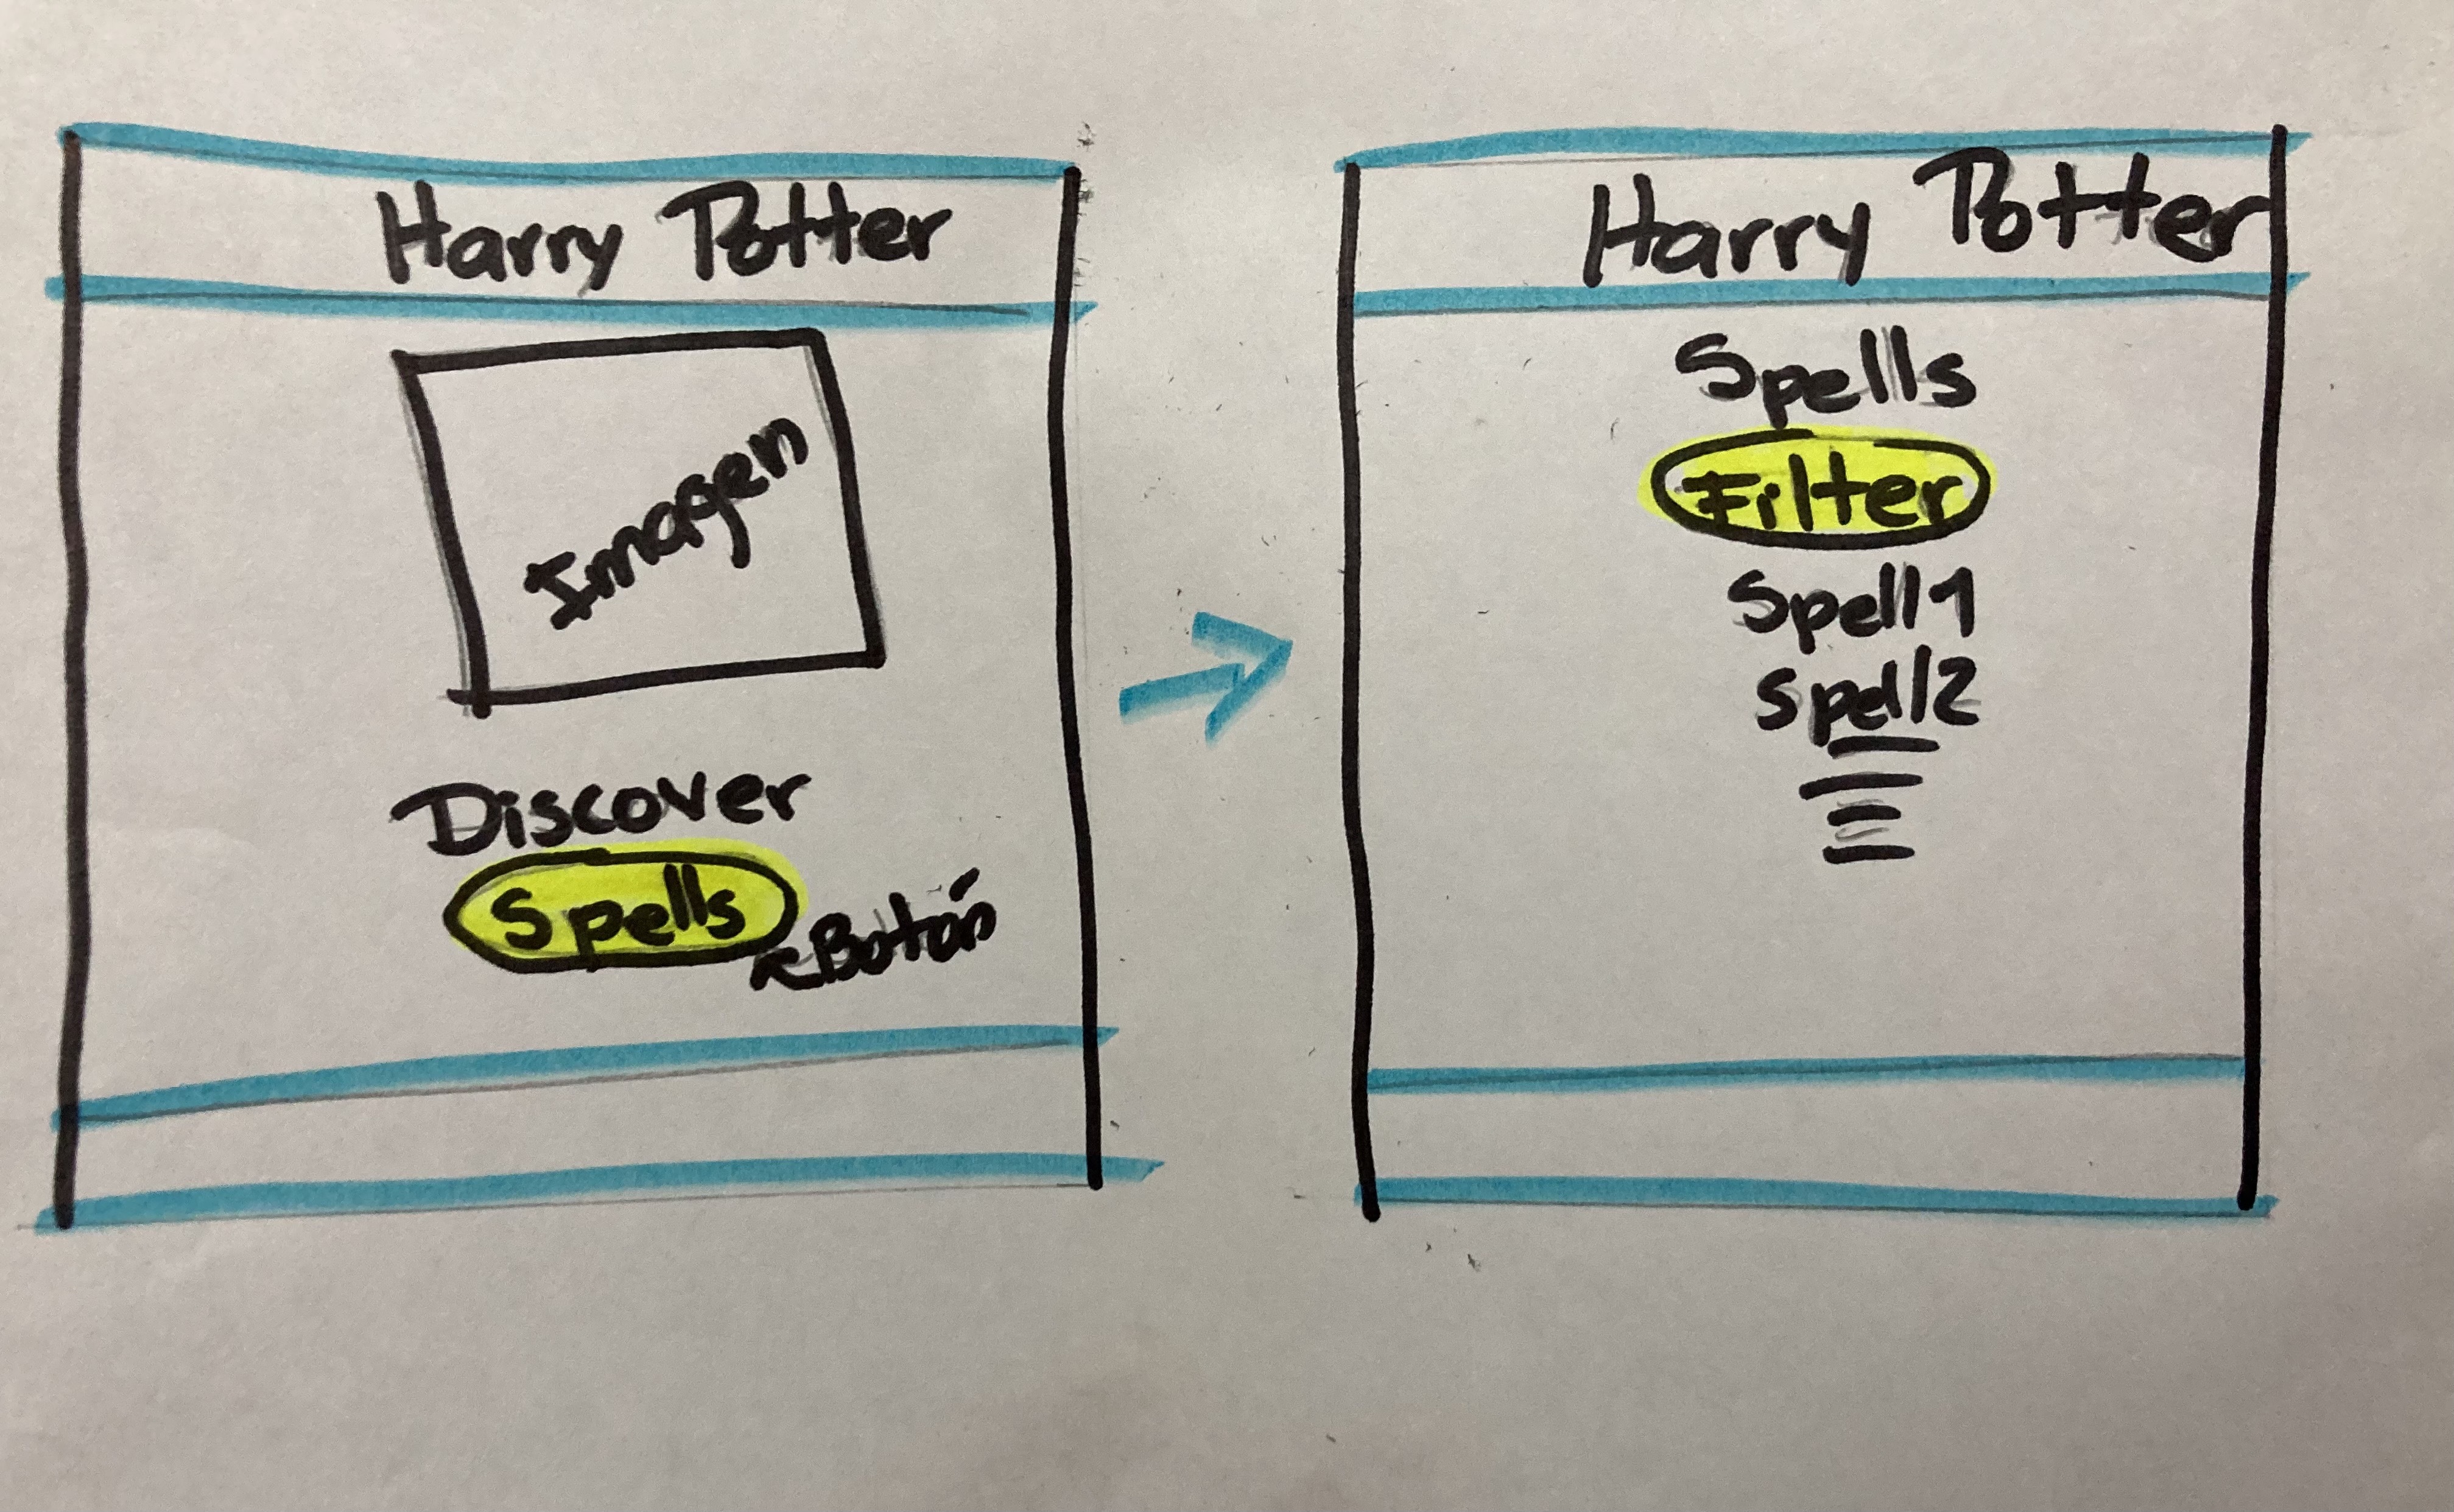 Harry Potter
Imagen
Discover
Spells
Botón
Harry Potter
Spells
Filter
Spell1
Spell2